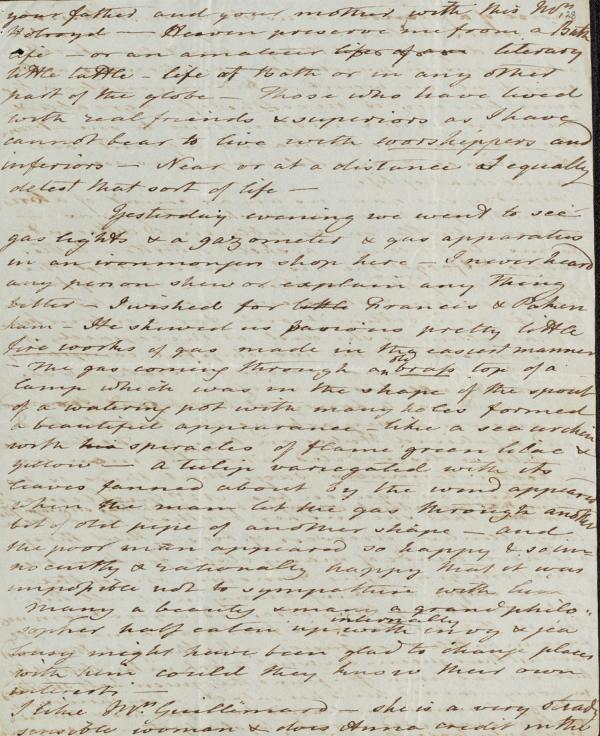 your father and your mother with this Mrs 128
Holroyd — Heaven preserve me from a Bath
life — or an amateur life of a literary
tittle tattle — life at Bath or in any other
part of the globe — Those who have lived
with real friends & superiors as I have
cannot bear to live with worshippers and
inferiors — Near or at a distance I equally
detest that sort of life —
Yesterday evening we went to see
gas lights & a gazometer & gas apparatus
in an ironmongers shop here — I never heard
any person shew or explain any thing
better — I wished for little Francis & Paken
ham — He shewed us various pretty little
fire works of gas made in the easiest manner
— The gas coming through an old brass top of a
lamp which was in the shape of the spout
of a watering pot with many holes formed
a beautiful appearance — like a sea urchin
with his spiracles of flame green lilac &
yellow — A tulip variegated with its
leaves fanned about by the wind appeared
when the man let the gas through another
bit of old pipe of another shape — and
the poor man appeared so happy & so in
nocently & rationally happy that it was
impossible not to sympathise with him
Many a beauty & many a grand philo-
sopher half eaten up internally with envy & jea
lousy might have been glad to change places
with him could they know their own
interests —
I like Mrs Guillimard — she is a very steady
sensible woman & does Anna credit in the